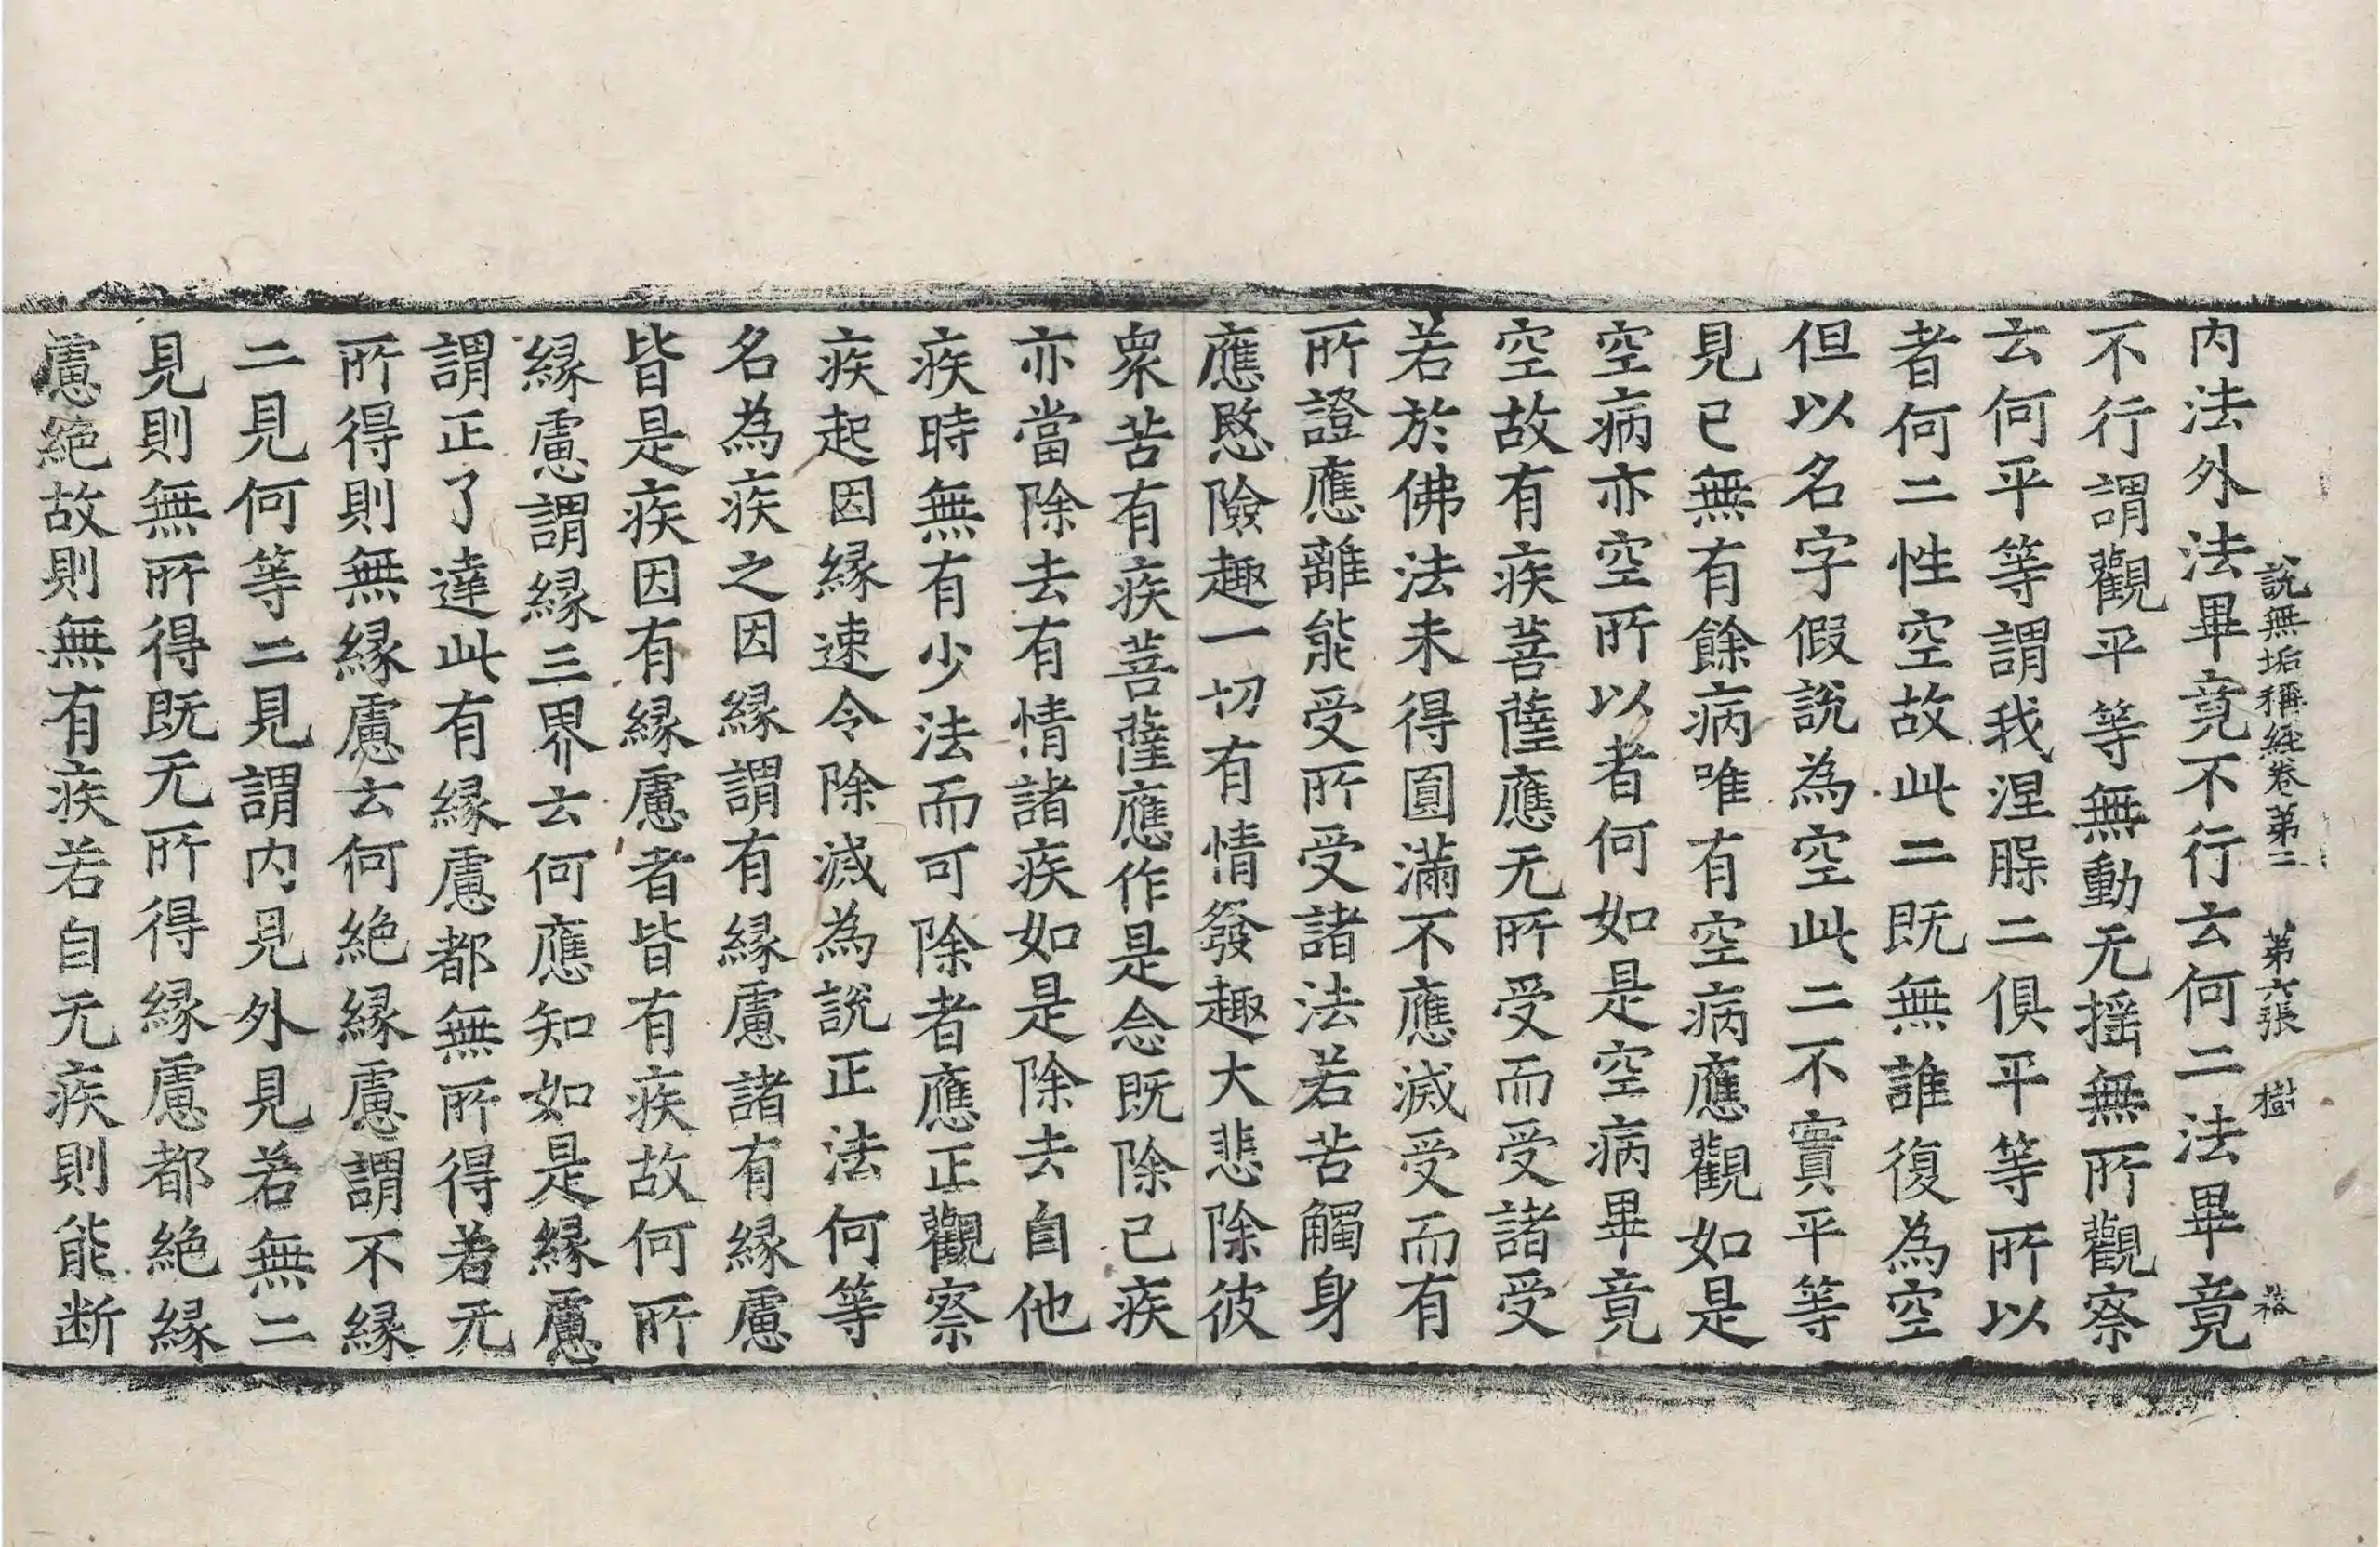 說無垢稱經卷第二　第六張　樹
內法外法畢竟不行云何二法畢竟
不行謂觀平等無動无摇無所觀察
云何平等謂我涅脲二俱平等所以
者何二性空故此二既無誰復為空
但以名字假說為空此二不實平等
見已無有餘病唯有空病應觀如是
空病亦空所以者何如是空病畢竟
空故有疾菩薩應无所受而受諸受
若於佛法未得圓滿不應滅受而有
所證應離能受所受諸法若苦觸身
應愍險趣一切有情發趣大悲除彼
衆苦有疾菩薩應作是念既除己疾
亦當除去有情諸疾如是除去自他
疾時無有少法而可除者應正觀察
疾起因縁速令除滅為說正法何等
名為疾之因縁謂有縁慮諸有縁慮
皆是疾因有縁慮者皆有疾故何所
縁慮謂縁三界云何應知如是縁慮
謂正了達此有縁慮都無所得若无
所得則無縁慮云何絶縁慮謂不縁
二見何等二見謂內見外見若無二
見則無所得既无所得縁慮都絶縁
慮絶故則無有疾若自无疾則能断